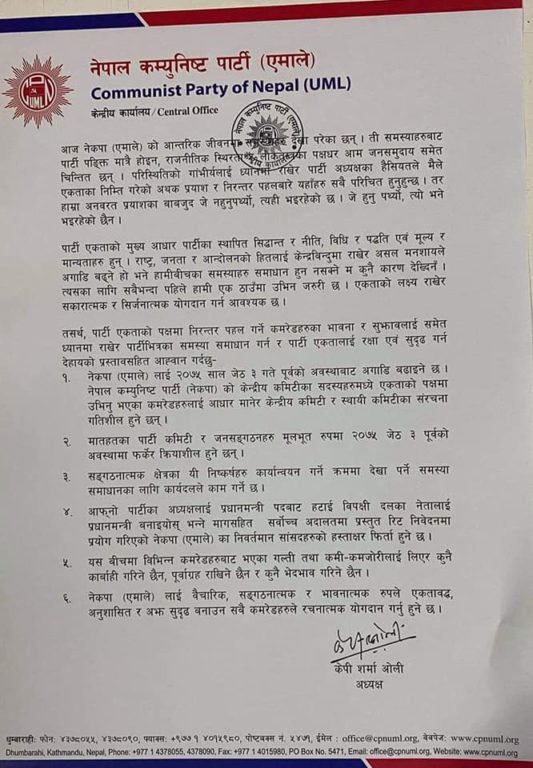 नेपाल कम्युनिष्ट पार्टी (एमाले)
Communist Party of Nepal (UML)
केन्द्रीय कार्यालय/Central Office
आज नेकपा (एमाले) को आन्तरिक जीवनमा देखा परेका छन् । ती समस्याहरुबाट
पार्टी पङ्क्ति मात्रै होइन, राजनीतिक स्थिरता र लोकतन्त्रका पक्षधर आम जनसमुदाय समेत
चिन्तित छन् । परिस्थितिको गांभीर्यलाई ध्यानमा राखेर पार्टी अध्यक्षका हैसियतले मैले
एकताका निम्ति गरेको अथक प्रयाश र निरन्तर पहलबारे यहाँहरु सबै परिचित हुनुहुन्छ । तर
हाम्रा अनवरत प्रयाशका बाबजुद जे नहुनुपर्थ्यो, त्यही भइरहेको छ । जे हुनु पर्थ्यो, त्यो भने
भइरहेको छैन ।
पार्टी एकताको मुख्य आधार पार्टीका स्थापित सिद्धान्त र नीति, विधि र पद्धति एवं मूल्य र
मान्यताहरु हुन् । राष्ट्र, जनता र आन्दोलनको हितलाई केन्द्रविन्दुमा राखेर असल मनशायले
अगाडि बढ्ने हो भने हामीबीचका समस्याहरु समाधान हुन नसक्ने म कुनै कारण देख्दिनँ ।
त्यसका लागि सबैभन्दा पहिले हामी एक ठाउँमा उभिन जरुरी छ । एकताको लक्ष्य राखेर
सकारात्मक र सिर्जनात्मक योगदान गर्न आवश्यक छ ।
तसर्थ, पार्टी एकताको पक्षमा निरन्तर पहल गर्ने कमरेडहरुका भावना र सुझावलाई समेत
ध्यानमा राखेर पार्टीभित्रका समस्या समाधान गर्न र पार्टी एकतालाई रक्षा एवं सुदृढ गर्न
देहायको प्रस्तावसहित आह्वान गर्दछु-
१. नेकपा (एमाले) लाई २०७५ साल जेठ ३ गते पूर्वको अवस्थाबाट अगाडि बढाइने छ ।
नेपाल कम्युनिष्ट पार्टी (नेकपा) को केन्द्रीय कमिटीका सदस्यहरुमध्ये एकताको पक्षमा
उभिनु भएका कमरेडहरुलाई आधार मानेर केन्द्रीय कमिटी र स्थायी कमिटीका संरचना
गतिशील हुने छन् ।
२. मातहतका पार्टी कमिटी र जनसङ्गठनहरु मूलभूत रुपमा २०७५ जेठ ३ पूर्वको
अवस्थामा फर्केर क्रियाशील हुने छन् ।
३. सङ्गठनात्मक क्षेत्रका यी निष्कर्षहरु कार्यान्वयन गर्ने क्रममा देखा पर्ने समस्या
समाधानका लागि कार्यदलले काम गर्ने छ ।
४. आफ्नो पार्टीका अध्यक्षलाई प्रधानमन्त्री पदबाट हटाई विपक्षी दलका नेतालाई
प्रधानमन्त्री बनाइयोस् भन्ने मागसहित सर्वोच्च अदालतमा प्रस्तुत रिट निवेदनमा
प्रयोग गरिएको नेकपा (एमाले) का निवर्तमान सांसदहरुको हस्ताक्षर फिर्ता हुने छ ।
५. यस बीचमा विभिन्न कमरेडहरुबाट भएका गल्ती तथा कमी-कमजोरीलाई लिएर कुनै
कार्वाही गरिने छैन, पूर्वाग्रह राखिने छैन र कुनै भेदभाव गरिने छैन ।
६. नेकपा (एमाले) लाई वैचारिक, सङ्गठनात्मक र भावनात्मक रुपले एकताबद्ध,
अनुशासित र अझ सुदृढ बनाउन सबै कमरेडहरुले रचनात्मक योगदान गर्नु हुने छ ।
केपी शर्मा ओली
अध्यक्ष
धुम्बाराही: फोन: ४३७८०५५, ४३७८०९०, फ्याक्स: +९७७ १ ४०१५९८०, पोष्टबक्स नं. ५४७१, ईमेल : office@cpnuml.org, वेबपेज: www.cpnuml.org
Dhumbarahi, Kathmandu, Nepal, Phone: +977 1 4378055, 4378090, Fax: +977 1 4015980, PO Box No. 5471, Email: office@cpnuml.org, Website: www.cpnuml.org